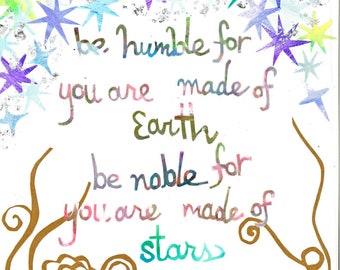 be humble for
you are made of
Earth
be noble for
you are made of
stars